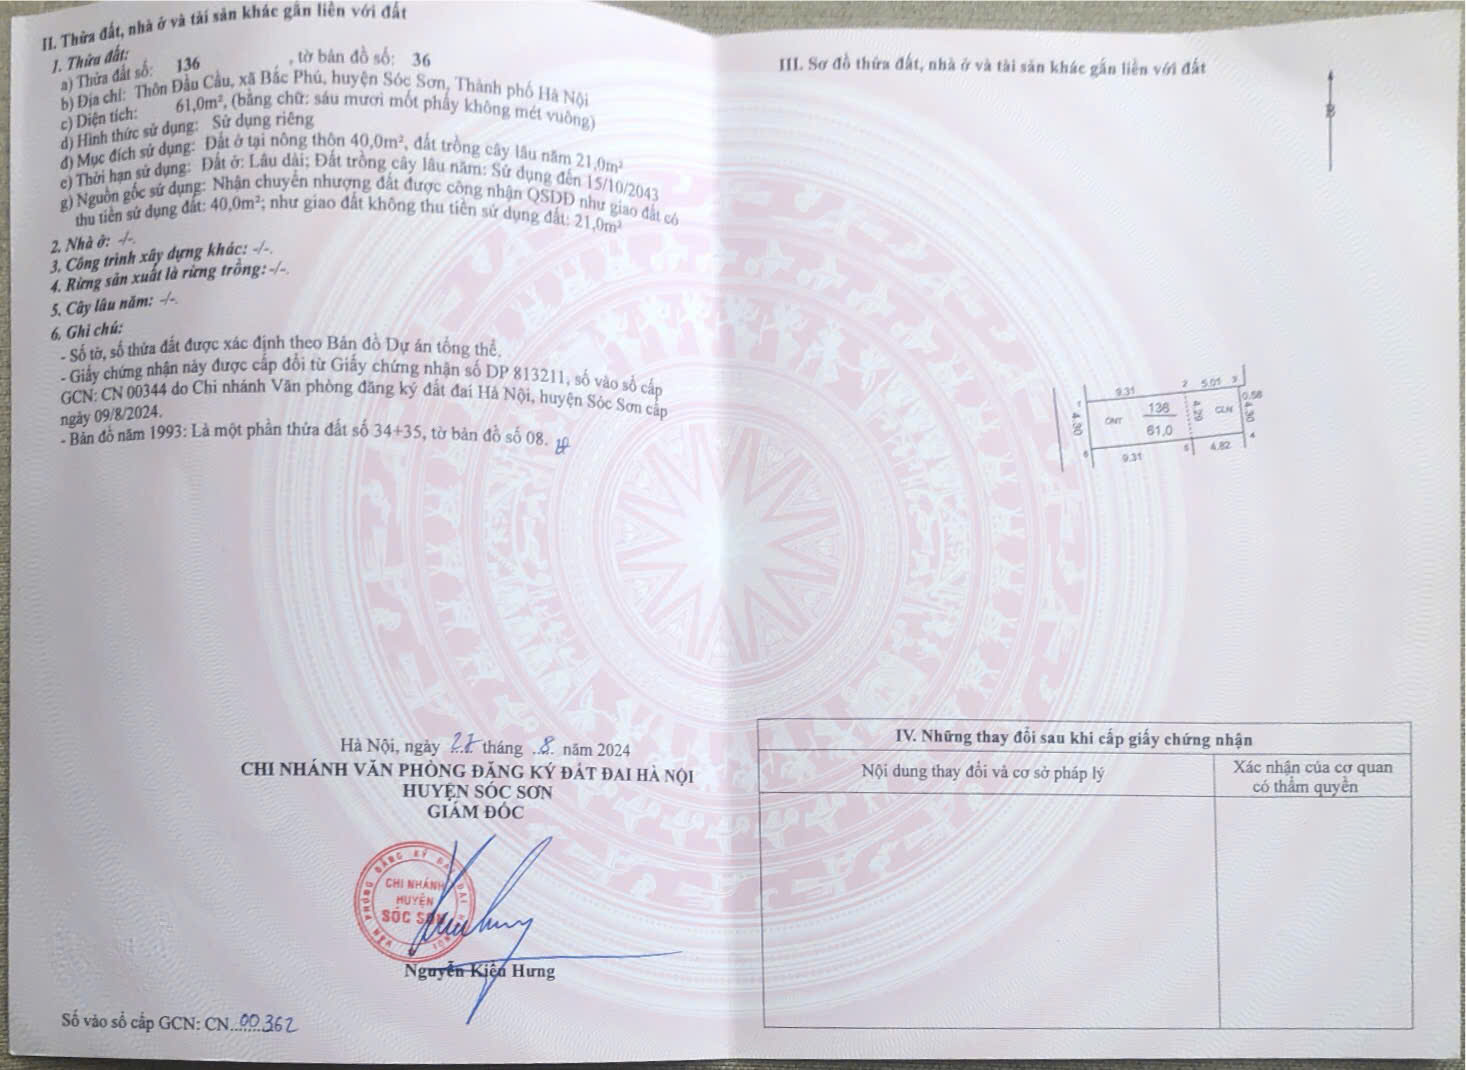 II. Thửa đất, nhà ở và tài sản khác gắn liền với đất
1. Thửa đất:
a) Thửa đất số: 136 , tờ bản đồ số: 36
b) Địa chỉ: Thôn Đầu Cầu, xã Bắc Phú, huyện Sóc Sơn, Thành phố Hà Nội
c) Diện tích: 61,0m², (bằng chữ: sáu mươi mốt phẩy không mét vuông)
d) Hình thức sử dụng: Sử dụng riêng
đ) Mục đích sử dụng: Đất ở tại nông thôn 40,0m², đất trồng cây lâu năm 21,0m²
e) Thời hạn sử dụng: Đất ở: Lâu dài; Đất trồng cây lâu năm: Sử dụng đến 15/10/2043
g) Nguồn gốc sử dụng: Nhận chuyển nhượng đất được công nhận QSDĐ như giao đất có
thu tiền sử dụng đất: 40,0m²; như giao đất không thu tiền sử dụng đất: 21,0m²
2. Nhà ở: -/-.
3. Công trình xây dựng khác: -/-.
4. Rừng sản xuất là rừng trồng: -/-.
5. Cây lâu năm: -/-.
6. Ghi chú:
- Số tờ, số thửa đất được xác định theo Bản đồ Dự án tổng thể.
- Giấy chứng nhận này được cấp đổi từ Giấy chứng nhận số DP 813211, số vào sổ cấp
GCN: CN 00344 do Chi nhánh Văn phòng đăng ký đất đai Hà Nội, huyện Sóc Sơn cấp
ngày 09/8/2024.
- Bản đồ năm 1993: Là một phần thửa đất số 34+35, tờ bản đồ số 08.
Hà Nội, ngày 27 tháng 8 năm 2024
CHI NHÁNH VĂN PHÒNG ĐĂNG KÝ ĐẤT ĐAI HÀ NỘI
HUYỆN SÓC SƠN
GIÁM ĐỐC
VĂN PHÒNG ĐĂNG KÝ ĐẤT ĐAI HÀ NỘI
CHI NHÁNH
HUYỆN
SÓC SƠN
Nguyễn Kiều Hưng
Số vào sổ cấp GCN: CN 00362
III. Sơ đồ thửa đất, nhà ở và tài sản khác gắn liền với đất
B
1 9.31 2 5.01 3
0.58
4.30 ONT 136 4.29 CLN 4.30
61,0
6 9.31 5 4.82 4
IV. Những thay đổi sau khi cấp giấy chứng nhận
Nội dung thay đổi và cơ sở pháp lý
Xác nhận của cơ quan
có thẩm quyền